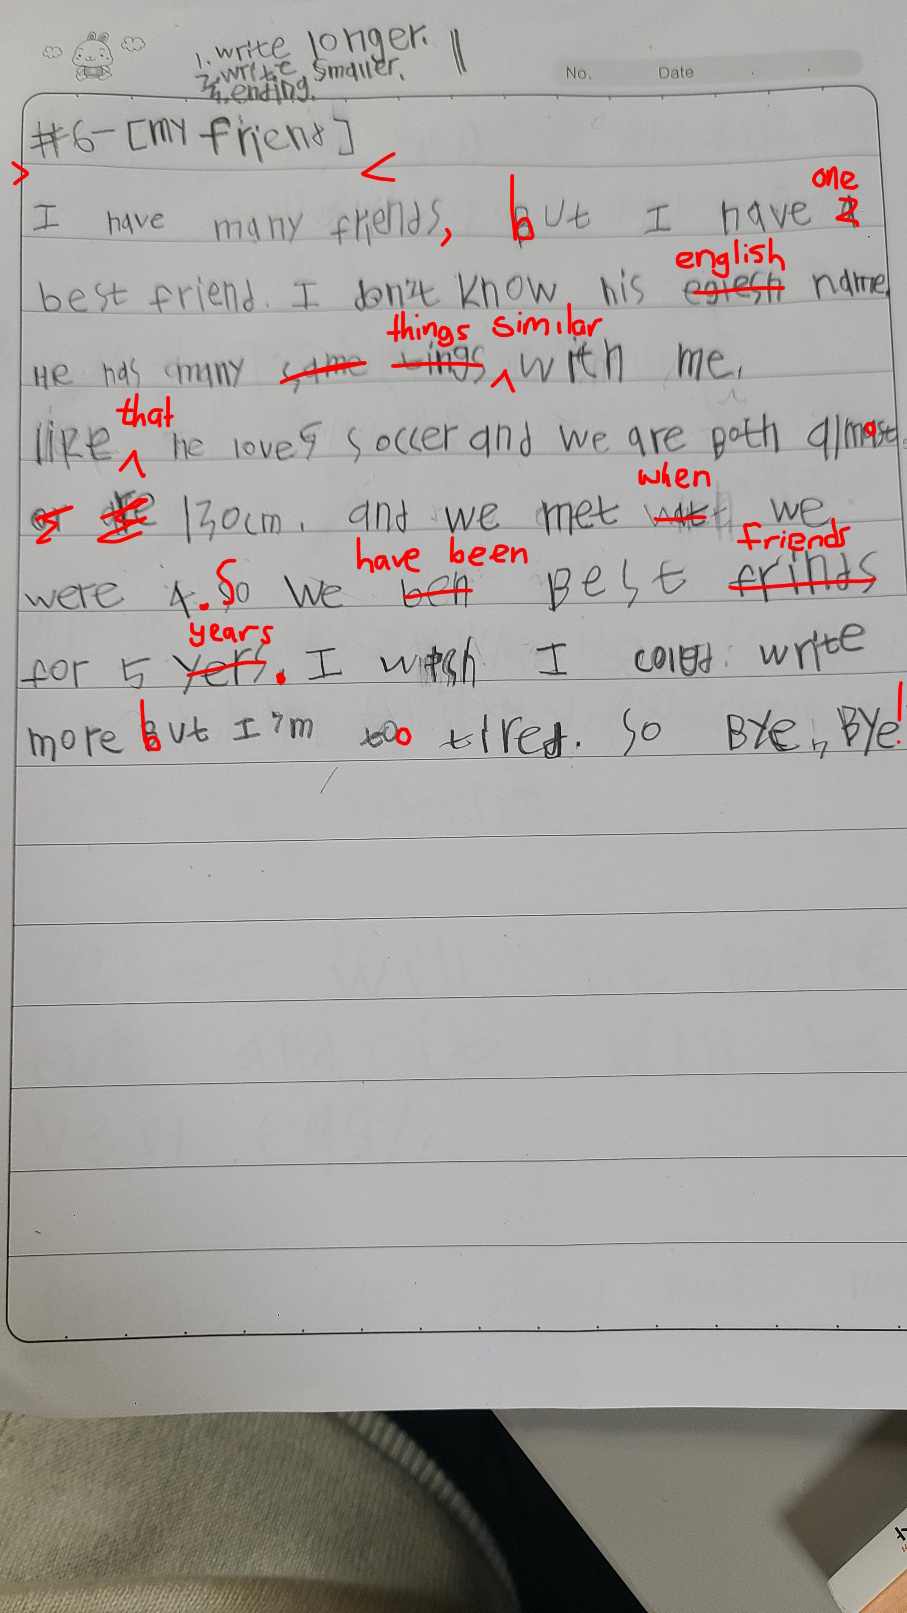 1. write longer.
2. write smaller.
3. ending.
No. Date
#6-[my friend]
> <
one
I have many friends, but I have
english
best friend. I don't know his egiesh name
things similar
He has many same tings with me,
that
like he loves soccer and we are both almost
when
130cm. and we met we
have been friends
were 4. So we ben Best frinds
years
for 5 yers. I wish I could write
more but I'm too tired. So BYE, BYE!